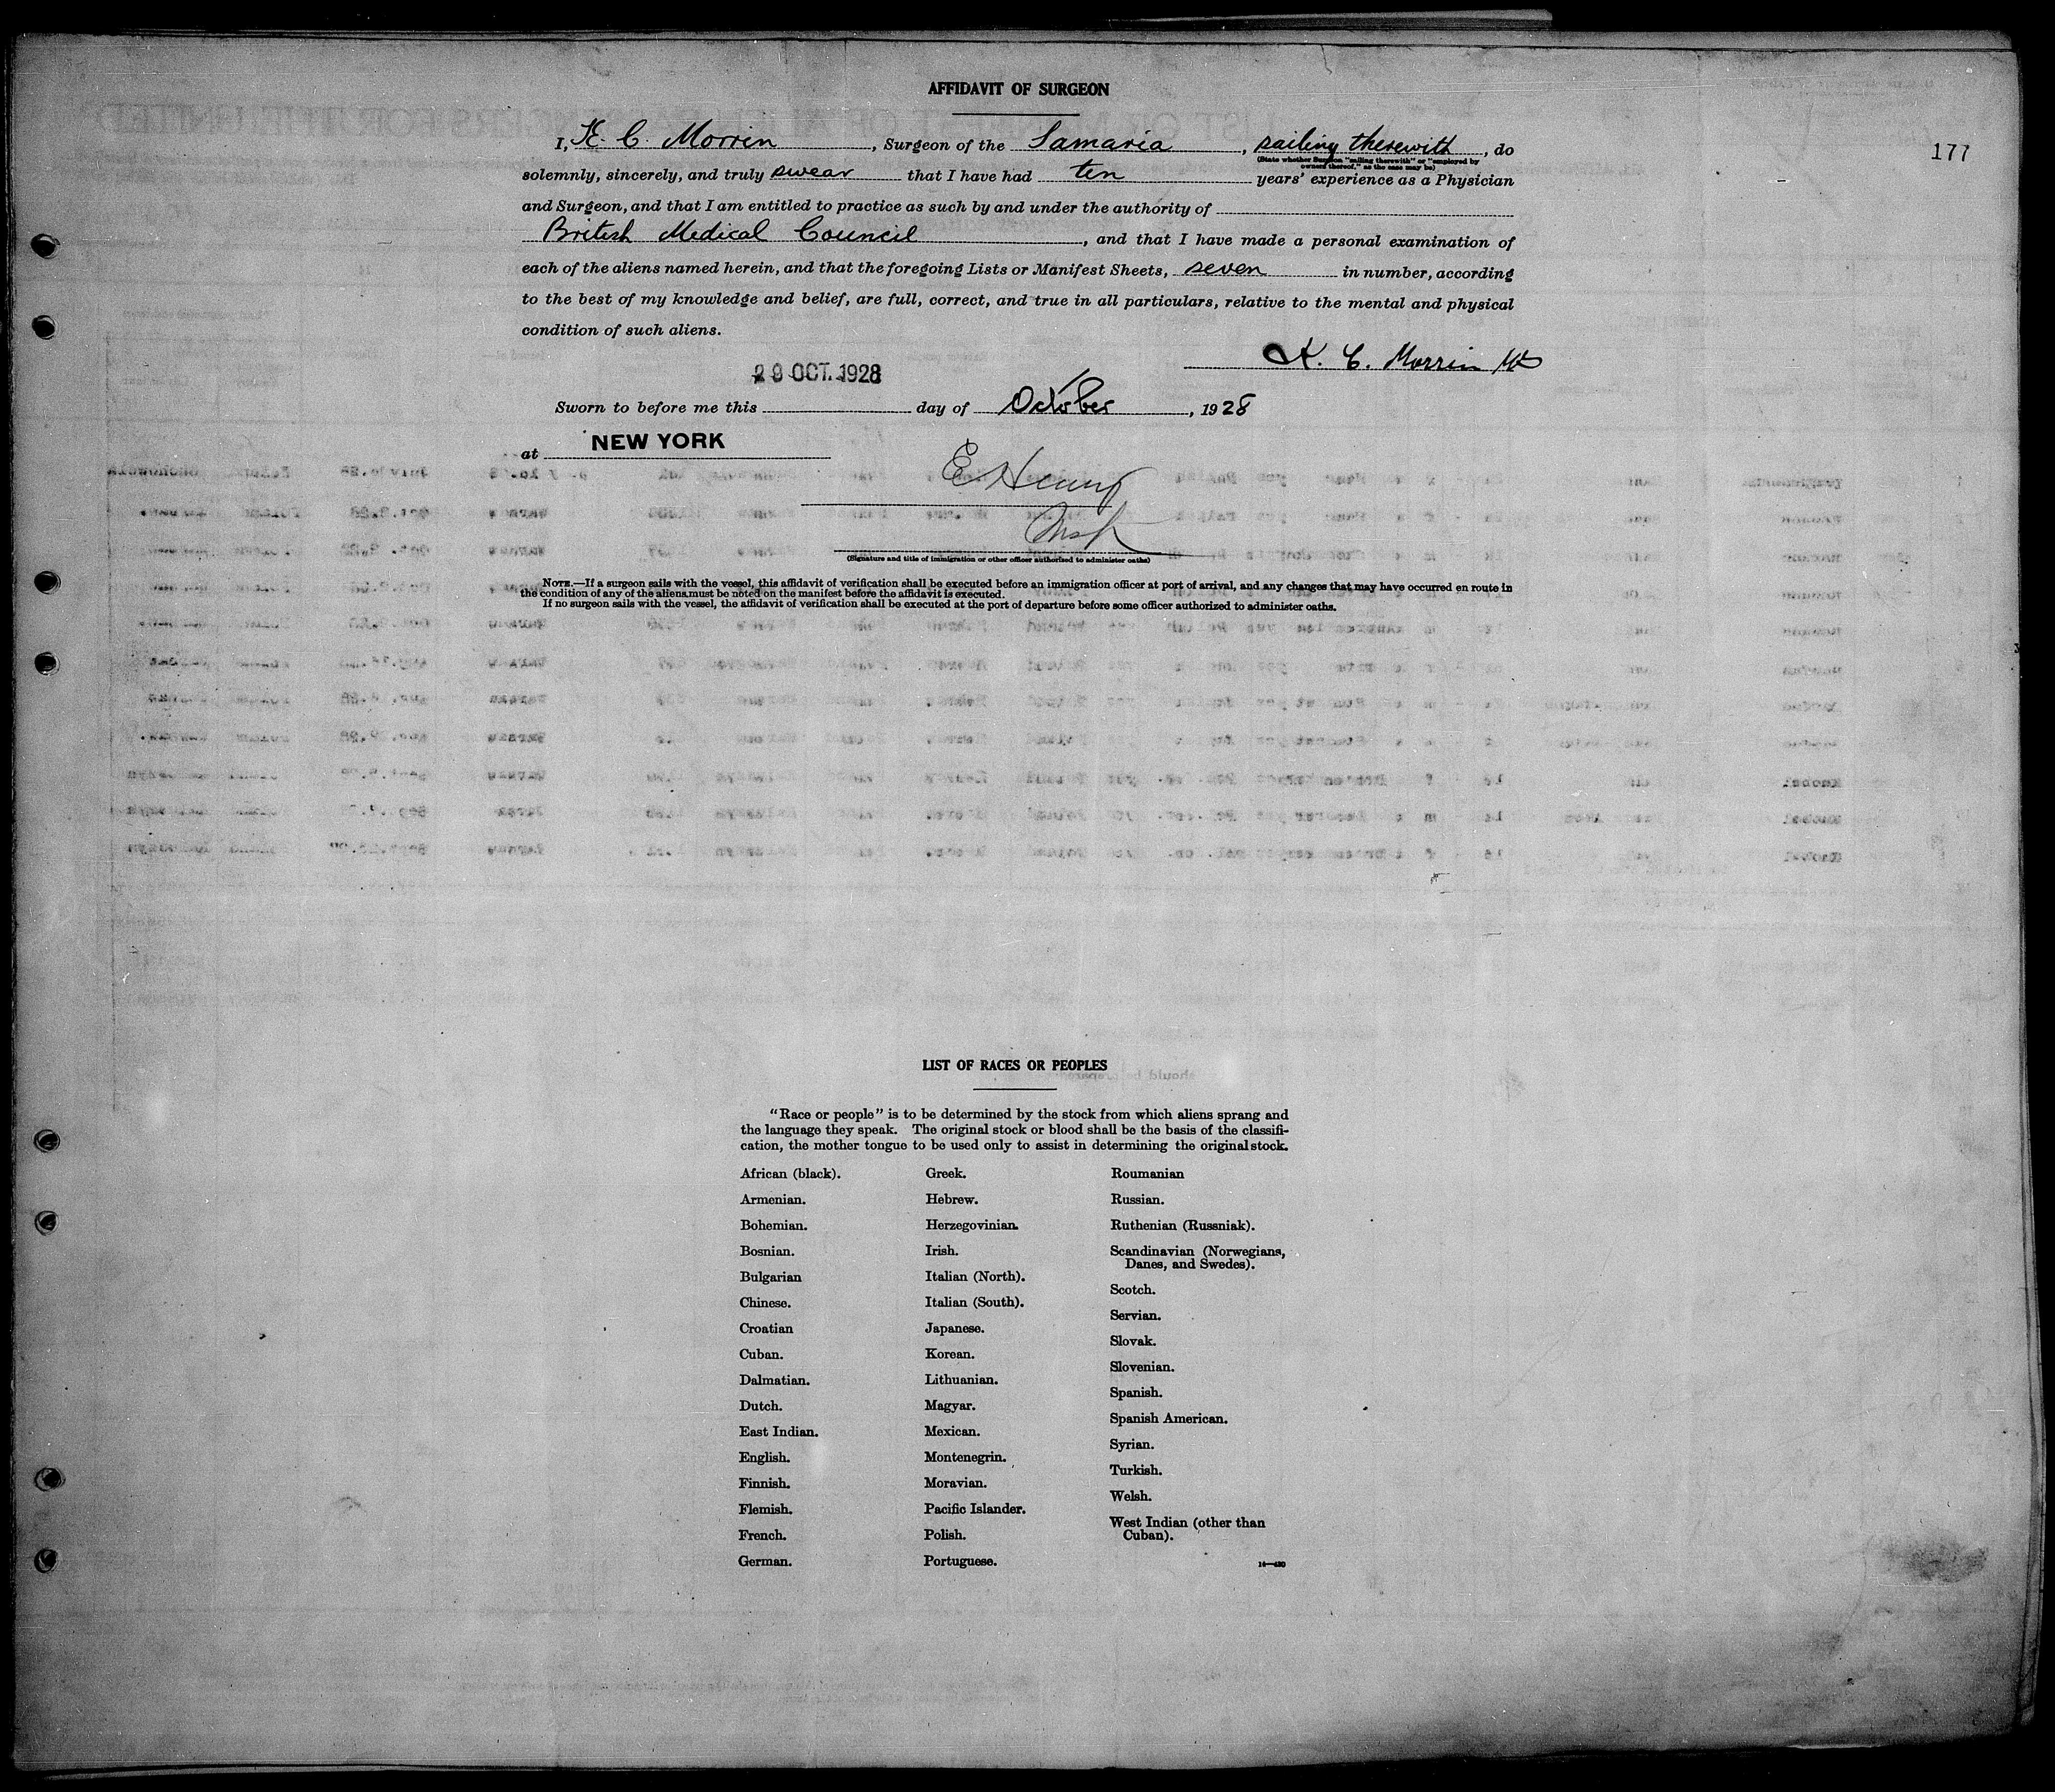 AFFIDAVIT OF SURGEON
177
I, K. C. Morrin, Surgeon of the Samaria, sailing therewith, do
(State whether Surgeon "sailing therewith" or "employed by
owners thereof," as the case may be)
solemnly, sincerely, and truly swear that I have had ten years' experience as a Physician
and Surgeon, and that I am entitled to practice as such by and under the authority of
British Medical Council, and that I have made a personal examination of
each of the aliens named herein, and that the foregoing Lists or Manifest Sheets, seven in number, according
to the best of my knowledge and belief, are full, correct, and true in all particulars, relative to the mental and physical
condition of such aliens.
K. C. Morrin
29 OCT. 1928
Sworn to before me this day of October, 1928
at NEW YORK
(Signature and title of immigration or other officer authorized to administer oaths)
NOTE.—If a surgeon sails with the vessel, this affidavit of verification shall be executed before an immigration officer at port of arrival, and any changes that may have occurred en route in
the condition of any of the aliens must be noted on the manifest before the affidavit is executed.
If no surgeon sails with the vessel, the affidavit of verification shall be executed at the port of departure before some officer authorized to administer oaths.
LIST OF RACES OR PEOPLES
"Race or people" is to be determined by the stock from which aliens sprang and
the language they speak. The original stock or blood shall be the basis of the classifi-
cation, the mother tongue to be used only to assist in determining the original stock.
African (black).
Armenian.
Bohemian.
Bosnian.
Bulgarian
Chinese.
Croatian
Cuban.
Dalmatian.
Dutch.
East Indian.
English.
Finnish.
Flemish.
French.
German.
Greek.
Hebrew.
Herzegovinian.
Irish.
Italian (North).
Italian (South).
Japanese.
Korean.
Lithuanian.
Magyar.
Mexican.
Montenegrin.
Moravian.
Pacific Islander.
Polish.
Portuguese.
Roumanian
Russian.
Ruthenian (Russniak).
Scandinavian (Norwegians,
Danes, and Swedes).
Scotch.
Servian.
Slovak.
Slovenian.
Spanish.
Spanish American.
Syrian.
Turkish.
Welsh.
West Indian (other than
Cuban).